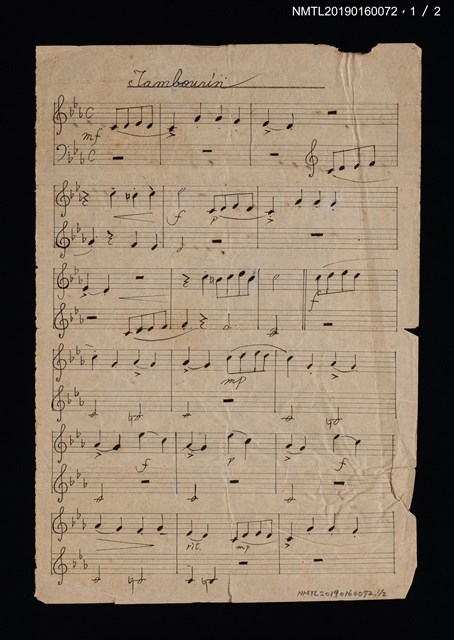 NMTL20190160072，1 / 2
Tambourin
C
mf
C
f
p
f
mp
f
p
f
rit.
mp
NMTL20190160072.1/2